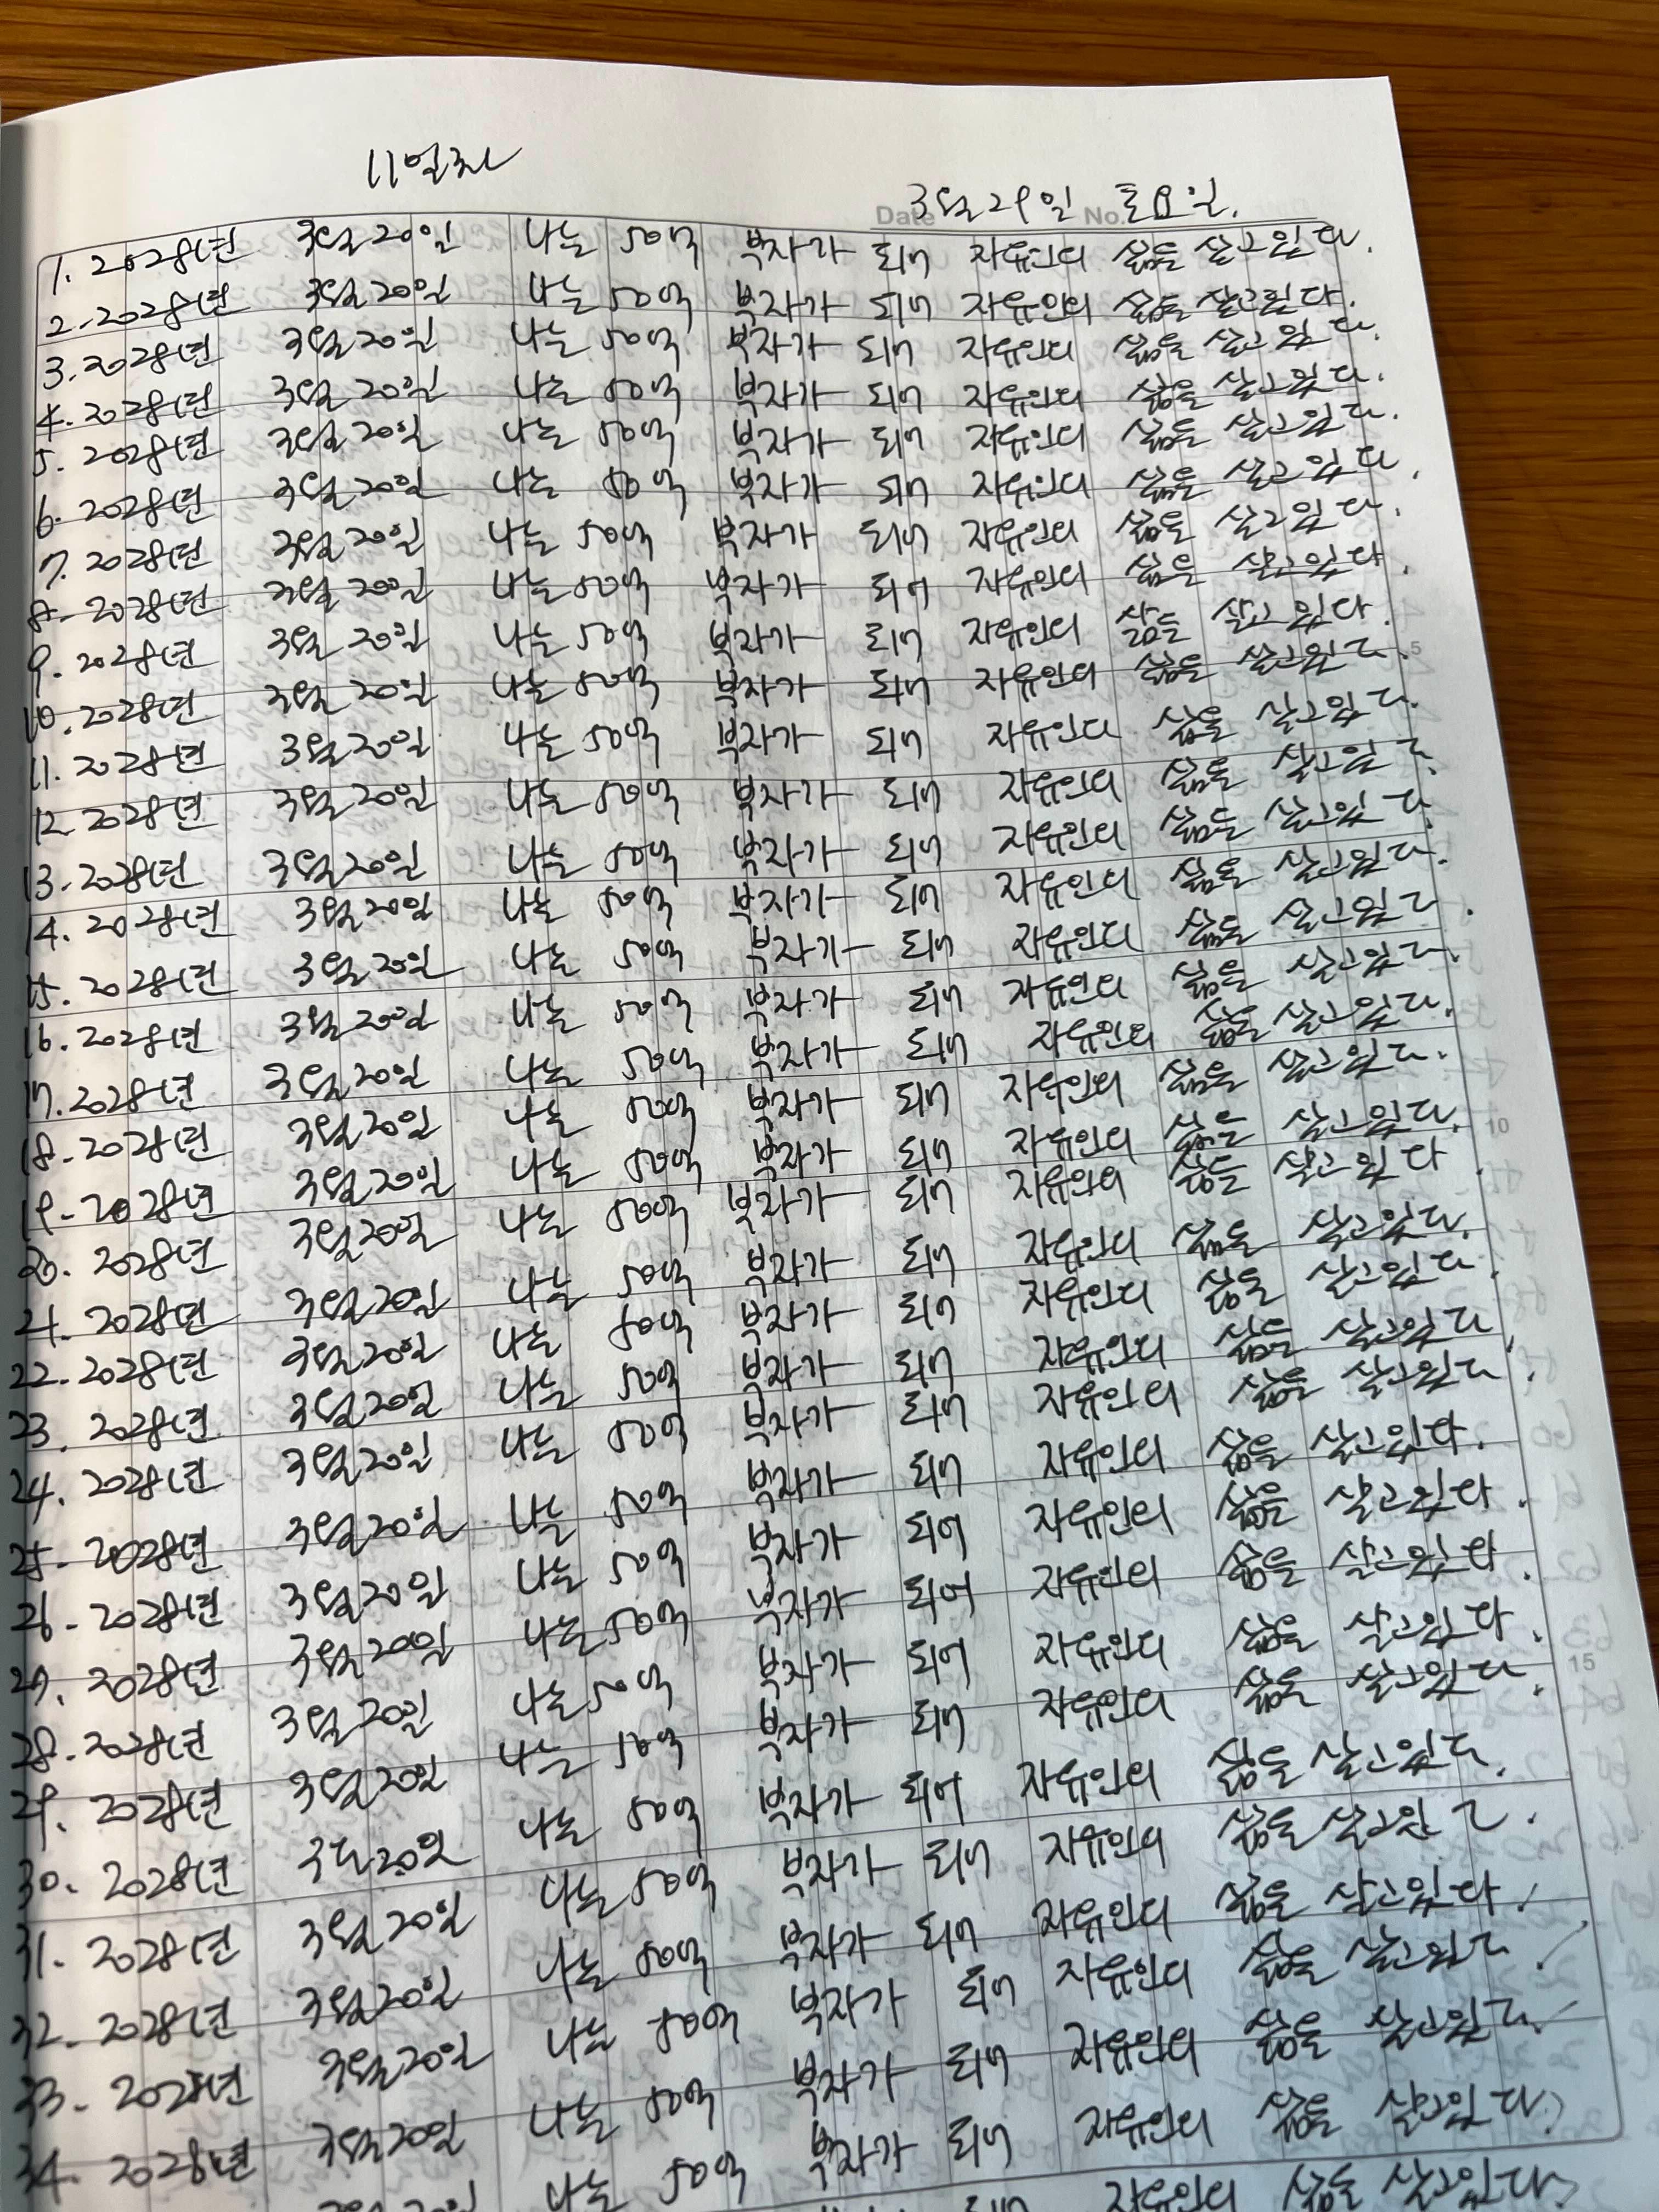 11일차
Date 3월 29일 No. 토요일.
1. 2028년 3월 20일 나는 50억 부자가 되어 자유인의 삶을 살고있다.
2. 2028년 3월 20일 나는 50억 부자가 되어 자유인의 삶을 살고있다.
3. 2028년 3월 20일 나는 50억 부자가 되어 자유인의 삶을 살고있다.
4. 2028년 3월 20일 나는 50억 부자가 되어 자유인의 삶을 살고있다.
5. 2028년 3월 20일 나는 50억 부자가 되어 자유인의 삶을 살고있다.
6. 2028년 3월 20일 나는 50억 부자가 되어 자유인의 삶을 살고있다.
7. 2028년 3월 20일 나는 50억 부자가 되어 자유인의 삶을 살고있다.
8. 2028년 3월 20일 나는 50억 부자가 되어 자유인의 삶을 살고있다.
9. 2028년 3월 20일 나는 50억 부자가 되어 자유인의 삶을 살고있다.
10. 2028년 3월 20일 나는 50억 부자가 되어 자유인의 삶을 살고있다.
11. 2028년 3월 20일 나는 50억 부자가 되어 자유인의 삶을 살고있다.
12. 2028년 3월 20일 나는 50억 부자가 되어 자유인의 삶을 살고있다.
13. 2028년 3월 20일 나는 50억 부자가 되어 자유인의 삶을 살고있다.
14. 2028년 3월 20일 나는 50억 부자가 되어 자유인의 삶을 살고있다.
15. 2028년 3월 20일 나는 50억 부자가 되어 자유인의 삶을 살고있다.
16. 2028년 3월 20일 나는 50억 부자가 되어 자유인의 삶을 살고있다.
17. 2028년 3월 20일 나는 50억 부자가 되어 자유인의 삶을 살고있다.
18. 2028년 3월 20일 나는 50억 부자가 되어 자유인의 삶을 살고있다.
19. 2028년 3월 20일 나는 50억 부자가 되어 자유인의 삶을 살고있다.
20. 2028년 3월 20일 나는 50억 부자가 되어 자유인의 삶을 살고있다.
21. 2028년 3월 20일 나는 50억 부자가 되어 자유인의 삶을 살고있다.
22. 2028년 3월 20일 나는 50억 부자가 되어 자유인의 삶을 살고있다.
23. 2028년 3월 20일 나는 50억 부자가 되어 자유인의 삶을 살고있다.
24. 2028년 3월 20일 나는 50억 부자가 되어 자유인의 삶을 살고있다.
25. 2028년 3월 20일 나는 50억 부자가 되어 자유인의 삶을 살고있다.
26. 2028년 3월 20일 나는 50억 부자가 되어 자유인의 삶을 살고있다.
27. 2028년 3월 20일 나는 50억 부자가 되어 자유인의 삶을 살고있다.
28. 2028년 3월 20일 나는 50억 부자가 되어 자유인의 삶을 살고있다.
29. 2028년 3월 20일 나는 50억 부자가 되어 자유인의 삶을 살고있다.
30. 2028년 3월 20일 나는 50억 부자가 되어 자유인의 삶을 살고있다.
31. 2028년 3월 20일 나는 50억 부자가 되어 자유인의 삶을 살고있다.
32. 2028년 3월 20일 나는 50억 부자가 되어 자유인의 삶을 살고있다.
33. 2028년 3월 20일 나는 50억 부자가 되어 자유인의 삶을 살고있다.
34. 2028년 3월 20일 나는 50억 부자가 되어 자유인의 삶을 살고있다.
3월 20일 나는 50억 부자가 되어 자유인의 삶을 살고있다.
5
10
15